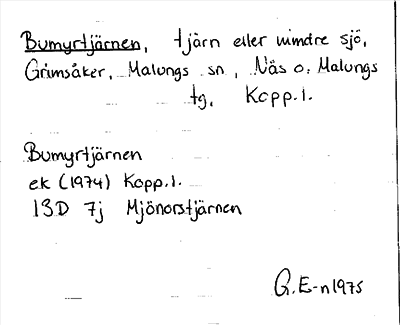 Bumyrtjärnen, tjärn eller mindre sjö,
Grimsåker, Malungs sn, Näs o. Malungs
tg, Kopp.l.
Bumyrtjärnen
ek (1974) Kopp.l.
13D 7j Mjönorstjärnen
G.E-n 1975